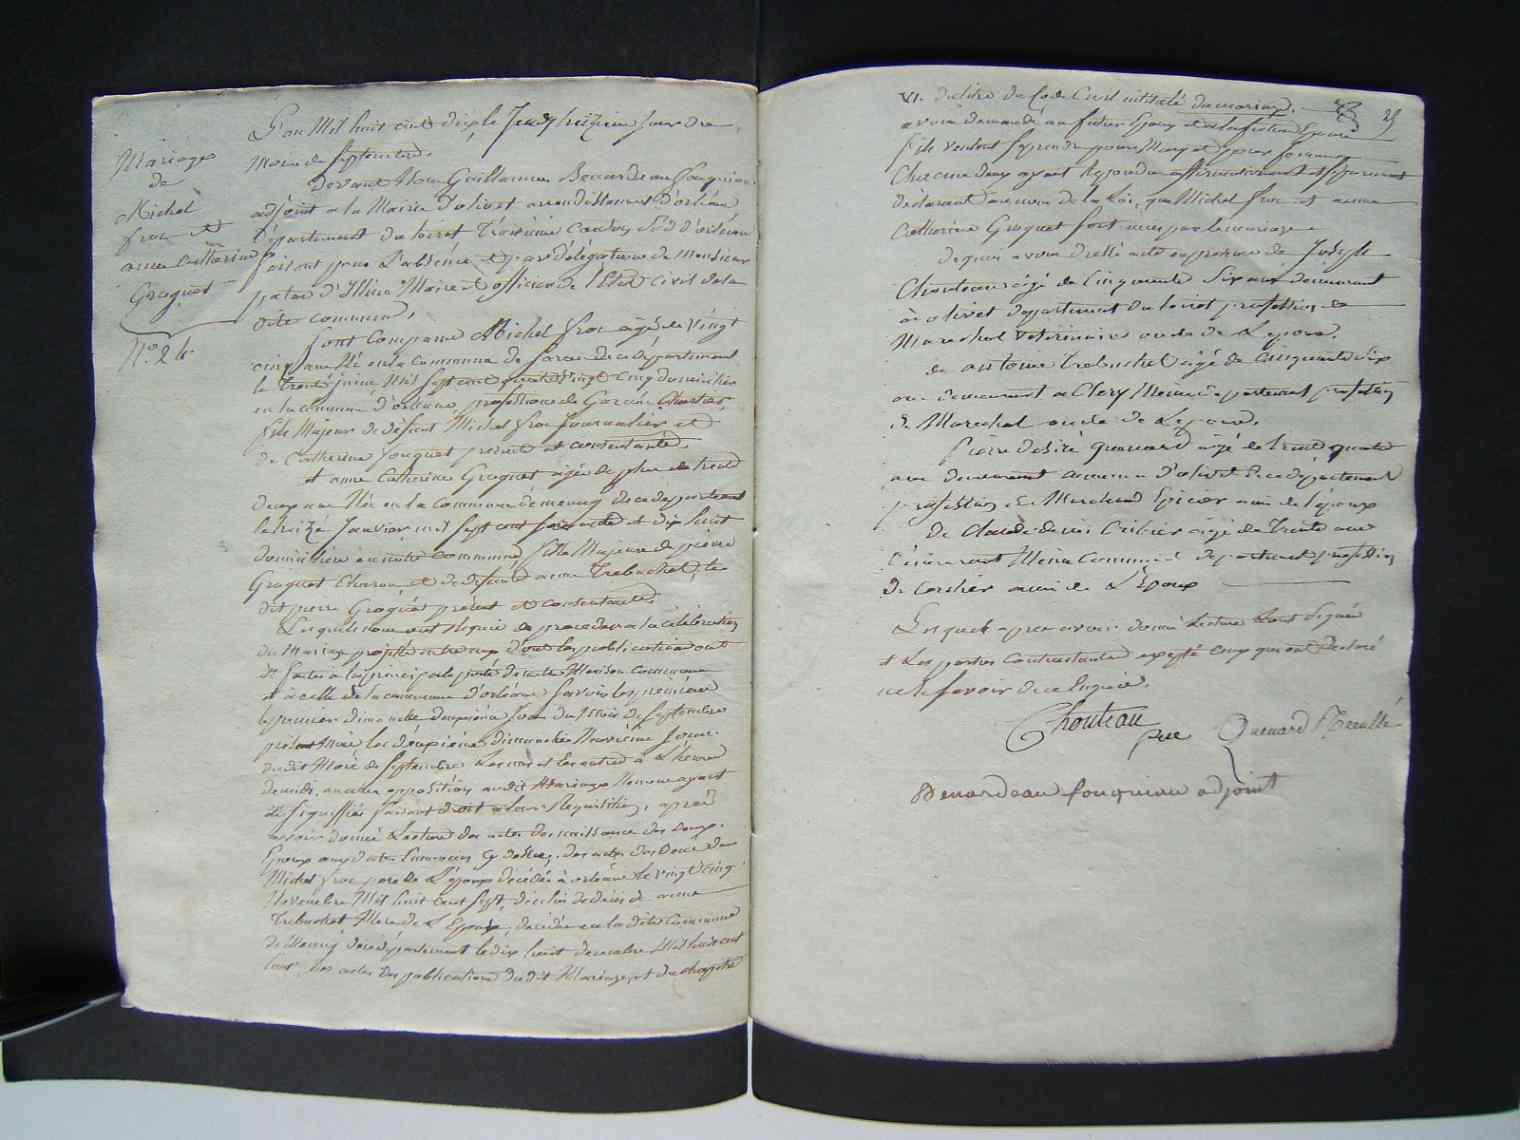 Mariage
de
Michel
froc et
anne Catherine
Groguet
N.o 24.
L'an Mil huit cent dix, le Jeudy treizieme Jour du
Mois de Septembre.
Devant Nous Guillaume Benardeau fouqueau
adjoint a la Mairie d'olivet arrondissement d'orléans
Département du Loiret Troisième Canton Sud d'orléans
faisant pour L'absence et par délégation de Monsieur
maire et officier de l'Etat Civil de la
dite commune,
Sont Comparus Michel froc agé de vingt
cinq ans Né en la Commune de Saran de ce département
le trente juin Mil Sept cent quatre vingt cinq domicilié
en la commune d'orléans, profession de Garçon Charron,
fils Majeur de défunt Michel froc Journalier et
de Catherine fouquet présente et consentante.
et anne Catherine Groguet agée de plus de trente
deux ans Née en la Commune de meung de ce département
le treize Janvier mil sept cent soixante et dix huit
domiciliée en cette commune, fille Majeure de pierre
Groguet Charron et de défunte anne Trebuchet, le
dit pierre Groguet présent et consentant.
Lesquels nous ont requis de procéder a la célébration
du Mariage projetté entre eux dont les publications ont
été faites a la principale porte de cette Maison Commune
et a celle de la commune d'orléans savoir les premières
le premier dimanche deuxième Jour du Mois de Septembre
présent Mois les deuxièmes dimanche Neuvième Jour
du dit Mois de Septembre Les unes et les autres à L'heure
de midi, aucune opposition au dit Mariage Ne nous ayant
été Signiffiée faisant droit a leur Réquisition, après
avoir donné Lecture des actes de naissance des deux
Epoux aux dates énoncées cy dessus, des actes de Décès de
Michel froc père de L'époux décédé à orléans le vingt cinq
Novembre Mil huit cent sept, de celui de décès de anne
Trebuchet Mère de L'Epouse, décédée en la dite Commune
de Meung de ce département le dix huit décembre Mil huit cent
des actes de publication du dit Mariage, et du chapitre
25
VI. du titre du Code Civil intitulé du mariage.
avoir demandé au futur Epoux et a la future Epouse
S'ils veulent se prendre pour Mary et pour femme
Chacun d'eux ayant Répondu affirmativement et séparement
déclarant au nom de la Loi, que Michel froc et anne
Catherine Groguet sont unis par le mariage
de quoi avons dressé acte en présence de Joseph
Chouteau agé de Cinquante Six ans demeurant
à olivet département du Loiret profession de
Marechal Vétérinaire oncle de L'epouse.
de antoine Trebuchet agé de Cinquante dix
ans demeurant a Clery Même département profession
de Marechal oncle de L'epouse.
pierre désiré guenard agé de trente quatre
ans demeurant commune d'olivet de ce département
profession de Marchand Epicier ami de l'époux
De Claude denis Cribier agé de Trente ans
demeurant Même Commune département profession
de Cordier ami de L'Epoux
Lesquels apres avoir donné Lecture l'ont Signé
et Les parties Contractantes excepté ceux qui ont déclaré
ne le Savoir de ce Enquis.
Chouteau
Guenard
Benardeau fouqueau adjoint